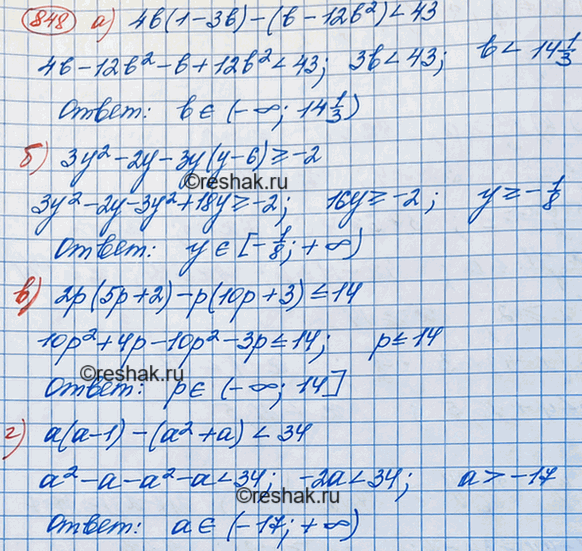 848 а) 4b(1-3b)-(b-12b²)<43
4b-12b²-b+12b²<43; 3b<43; b<14 1/3
Ответ: b∈(-∞; 14 1/3)
б) 3y²-2y-3y(y-6)≥-2
©reshak.ru
3y²-2y-3y²+18y≥-2; 16y≥-2; y≥-1/8
Ответ: y∈[-1/8; +∞)
в) 2p(5p+2)-p(10p+3)≤14
10p²+4p-10p²-3p≤14; p≤14
©reshak.ru
Ответ: p∈(-∞; 14]
г) a(a-1)-(a²+a)<34
a²-a-a²-a<34; -2a<34; a>-17
©reshak.ru
Ответ: a∈(-17; +∞)